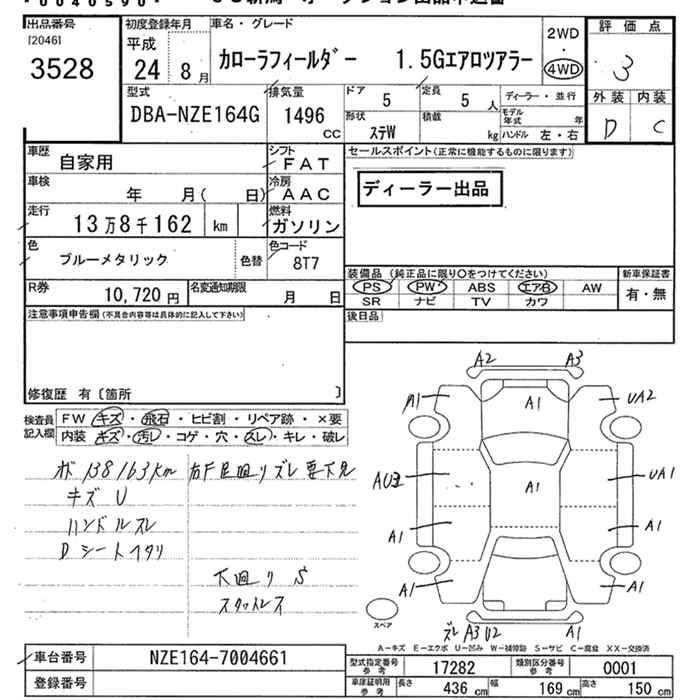 出品番号
[2046]
3528
初度登録年月
平成
24 8 月
車名・グレード
カローラフィールダー 1.5Gエアロツアラー
2WD
・
4WD
評価点
3
外装 内装
D C
型式
DBA-NZE164G
排気量
1496
CC
ドア
5
定員
5 人
ディーラー・並行
形状
ステW
積載
kg
モデル年式 年
ハンドル 左・右
車歴
自家用
シフト
FAT
車検
年 月( 日)
冷房
AAC
走行
13万8千162 km
燃料
ガソリン
色
ブルーメタリック
色替
色コード
8T7
R券
10,720 円
名変通知期限
月 日
セールスポイント(正常に機能するものに限ります)
ディーラー出品
装備品(純正品に限り○をつけてください)
PS PW ABS エアB AW
SR ナビ TV カワ
新車保証書
有・無
後日品
注意事項申告欄(不具合内容等は具体的に記入して下さい)
修復歴 有〔箇所 〕
検査員
記入欄
FW キズ・飛石・ヒビ割・リペア跡・×要
内装 キズ・汚レ・コゲ・穴・スレ・キレ・破レ
ホ 138163km
キズ U
ハンドルスレ
Dシートヘタリ
右F足廻リズレ要下見
下廻り S
スタットレス
A2 A3
A1 A1 UA2
A1 UA1
A1 A1
A1 A1
ズレ A3 U2 A1
スペア
A-キズ E-エクボ U-凹み W-補修跡 S-サビ C-腐食 XX-交換済
車台番号
NZE164-7004661
登録番号
型式指定番号
参考
17282
類別区分番号
参考
0001
車庫証明用
参考
長さ 436 cm 幅 169 cm 高さ 150 cm